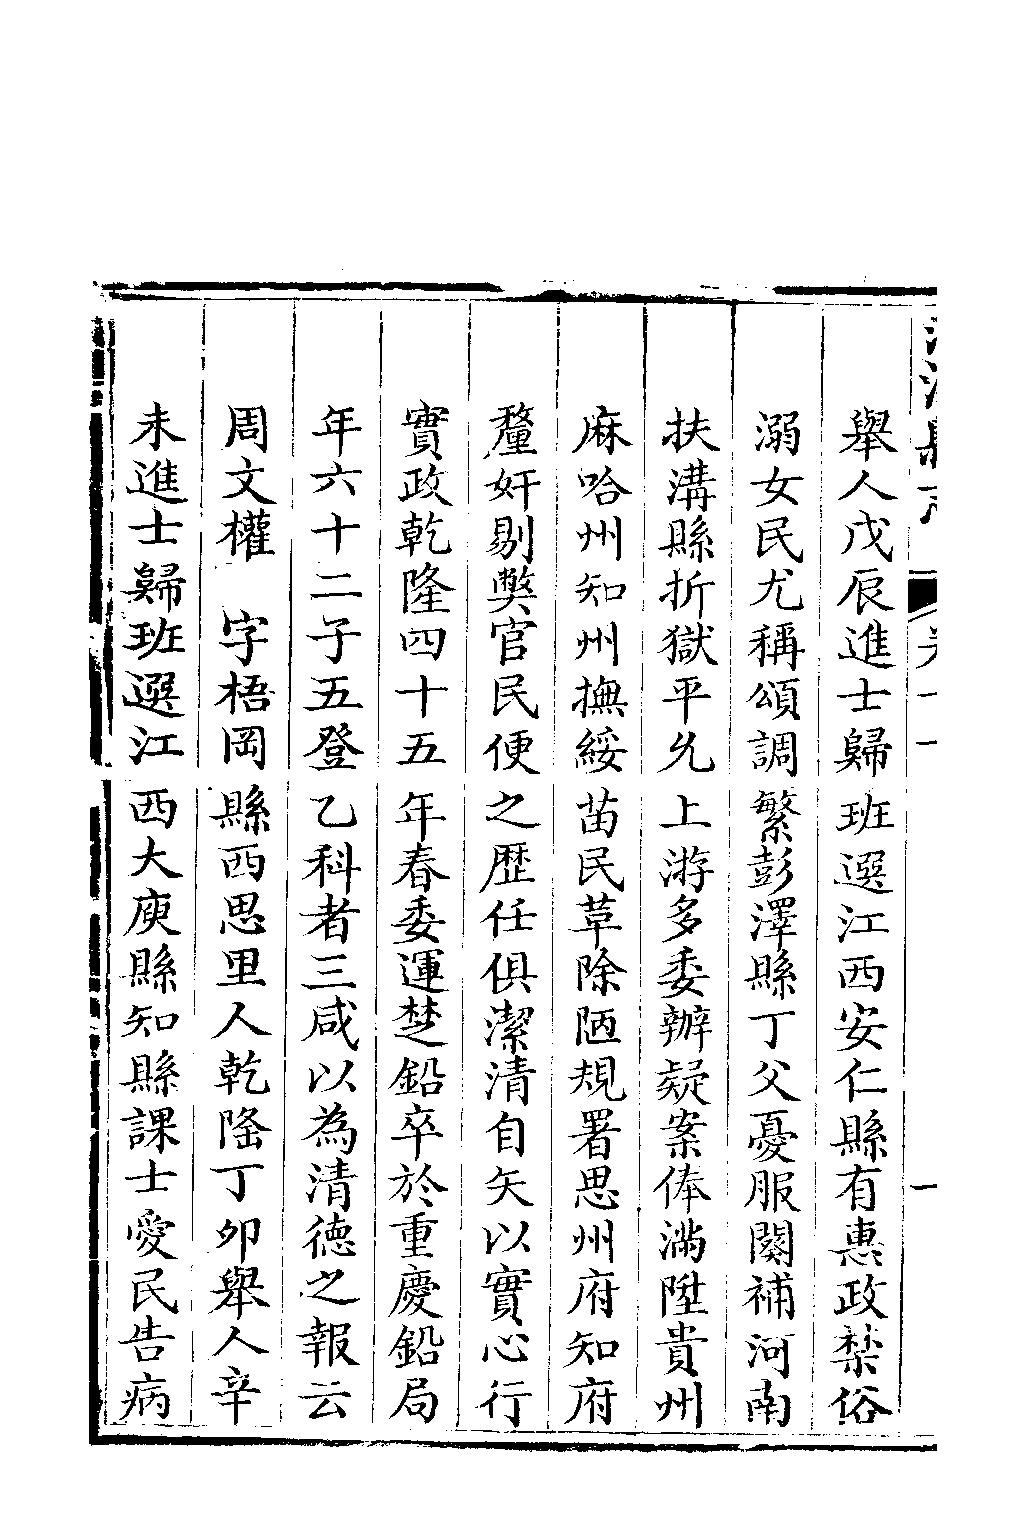 舉人戊辰進士歸班選江西安仁縣有惠政禁俗
溺女民尤稱頌調繁彭澤縣丁父憂服闋補河南
扶溝縣折獄平允上游多委辦疑案俸滿陞貴州
麻哈州知州撫綏苗民革除陋規署思州府知府
釐奸剔獘官民便之歷任俱潔清自矢以實心行
實政乾隆四十五年春委運楚鉛卒於重慶鉛局
年六十二子五登乙科者三咸以為清德之報云
周文權 字梧岡縣西思里人乾隆丁卯舉人辛
未進士歸班選江西大庾縣知縣課士愛民告病